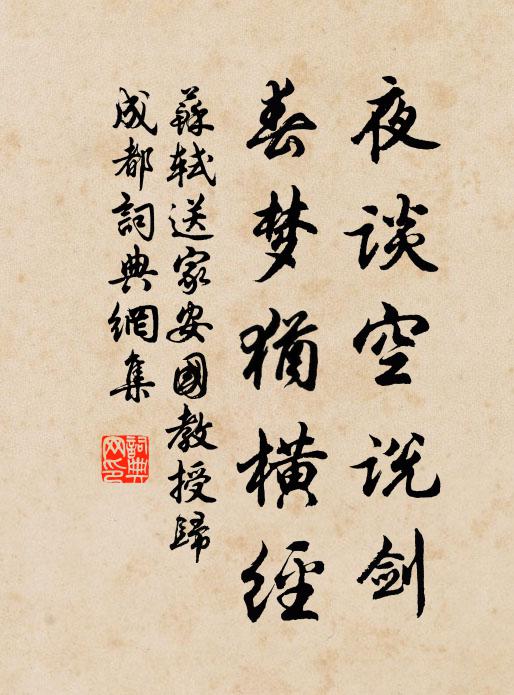 夜谈空说剑
春梦犹横经
蘇軾送家安國教授歸
成都詞典網集
詞典
网印